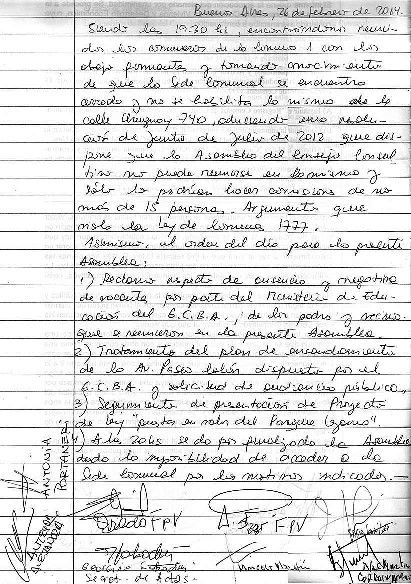 Buenos Aires, 26 de febrero de 2014.
Siendo las 19.30 hs, encontrándonos reuni-
dos los comuneros de la Comuna 1 con los
abajo firmantes y tomando conocimiento
de que la Sede Comunal se encuentra
cerrada y no se habilita la misma de la
calle Uruguay 740, aduciendo una resolu-
ción de Junta de Julio de 2012 que dis-
pone que la Asamblea del Consejo Consul
tivo no puede reunirse en la misma y
sólo lo podrían hacer comisiones de no
más de 15 personas. Argumento que
viola la Ley de Comunas 1777.
Asimismo, el orden del día para la presente
Asamblea:
1) Reclamo respecto de ausencia y negativa
de vacante por parte del Ministerio de Edu-
cación del G.C.B.A., de los padres y vecinos
que se reunieron en la presente Asamblea.
2) Tratamiento del plan de ensanchamiento
de la Av. Paseo Colón dispuesto por el
G.C.B.A. y solicitud de audiencia pública.
3) Seguimiento de presentación de Proyecto
de Ley "puesta en valor del Parque Lezama".
4) A las 20:65 se da por finalizada la Asamblea
dada la imposibilidad de acceder a la
Sede Comunal por los motivos indicados.-
ANTONIA
PORTANERI
FPV
FPV
Secret. de Actas.